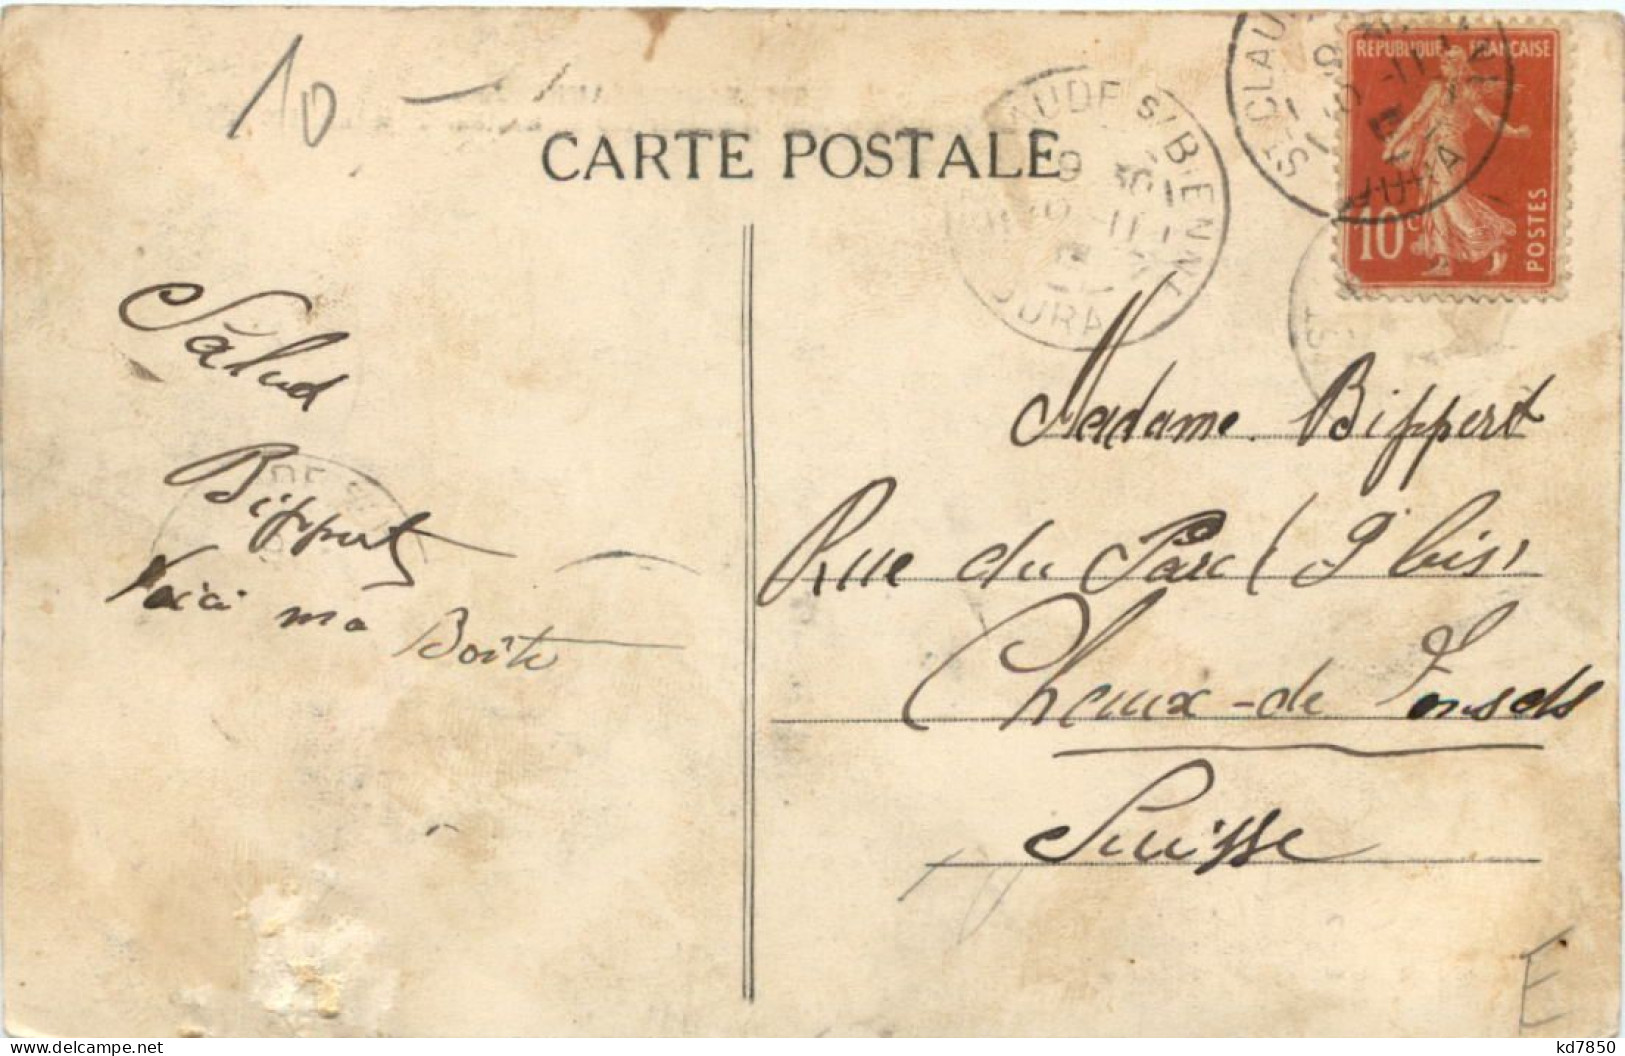 10 —
CARTE POSTALE
AUDE S/BIENNE
9 30
10 -11
JURA
ST CLAU
JURA
REPUBLIQUE FRANÇAISE
10 c
POSTES
Salud
Bippert
Voici ma Boîte
Madame Bippert
Rue du Parc (9 bis)
Cheaux-de Fonsds
Suisse
E
kd7850